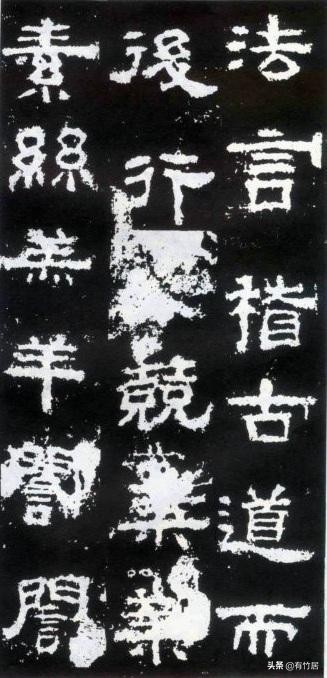 法言稽古道而
後行兢業業
素絲羔羊誾誾
头条 @有竹居